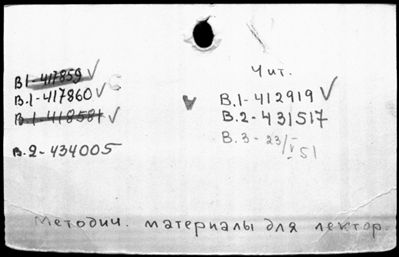 В1-417859 ✓
В.1-417860 ✓ С
В 1-418581 ✓
В.2-434005
Чит.
В.1-412919 ✓
В.2-431517
В.3-23/V 51
Методич. материалы для лектор.